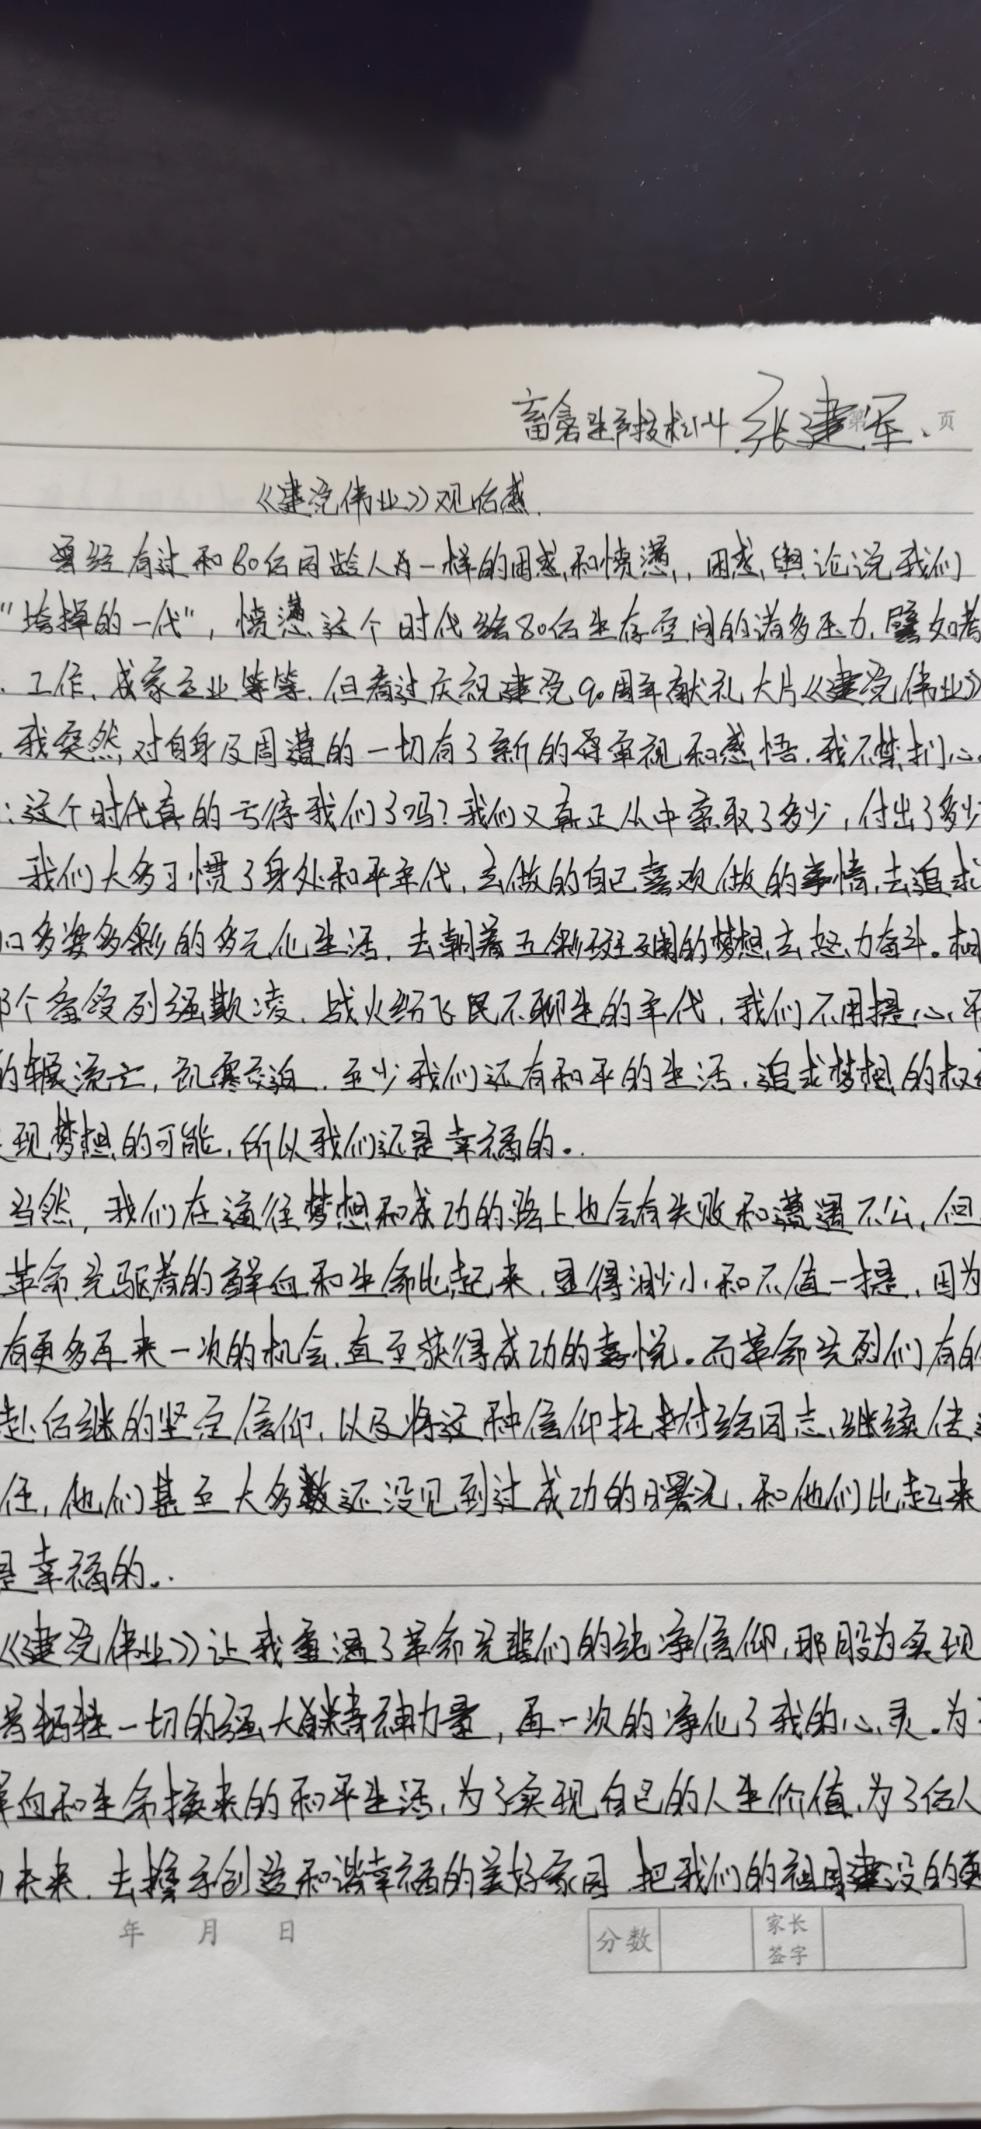 畜禽生产技术1-4 张建军 第 页
《建党伟业》观后感.
曾经有过和80后同龄人有一样的困惑和愤懑,困惑舆论说我们
"垮掉的一代",愤懑这个时代给80后生存空间的诸多压力,譬如考
、工作,成家立业等等.但看过庆祝建党90周年献礼大片《建党伟业》
,我突然对自身及周遭的一切有了新的审视和感悟.我不禁扪心
:这个时代真的亏待我们了吗?我们又真正从中索取了多少,付出了多少
我们大多习惯了身处和平年代,去做的自己喜欢做的事情,去追求
口多姿多彩的多元化生活,去朝着五彩斑斓的梦想去努力奋斗。相
那个备受列强欺凌,战火纷飞民不聊生的年代,我们不用提心
的辗流亡,饥寒交迫.至少我们还有和平的生活,追求梦想的权
现梦想的可能,所以我们还是幸福的。
当然,我们在通往梦想和成功的路上也会有失败和遭遇不公,但
革命先驱者的鲜血和生命比起来,显得渺小和不值一提,因为
有更多再来一次的机会,直至获得成功的喜悦。而革命先烈们有的
赴后继的坚定信仰,以及将这种信仰托付给同志,继续传
任,他们甚至大多数还没见到过成功的曙光,和他们比起来
是幸福的。
《建党伟业》让我重温了革命先辈们的纯净信仰,那股为实现
着牺牲一切的强大精神力量,再一次的净化了我的心灵.为
鲜血和生命换来的和平生活,为了实现自己的人生价值,为了后人
未来.去携手创造和谐幸福的美好家园.把我们的祖国建设的更
年 月 日
分数 家长签字